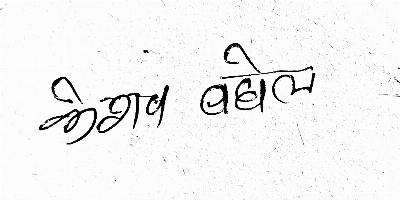 केशव बघेल